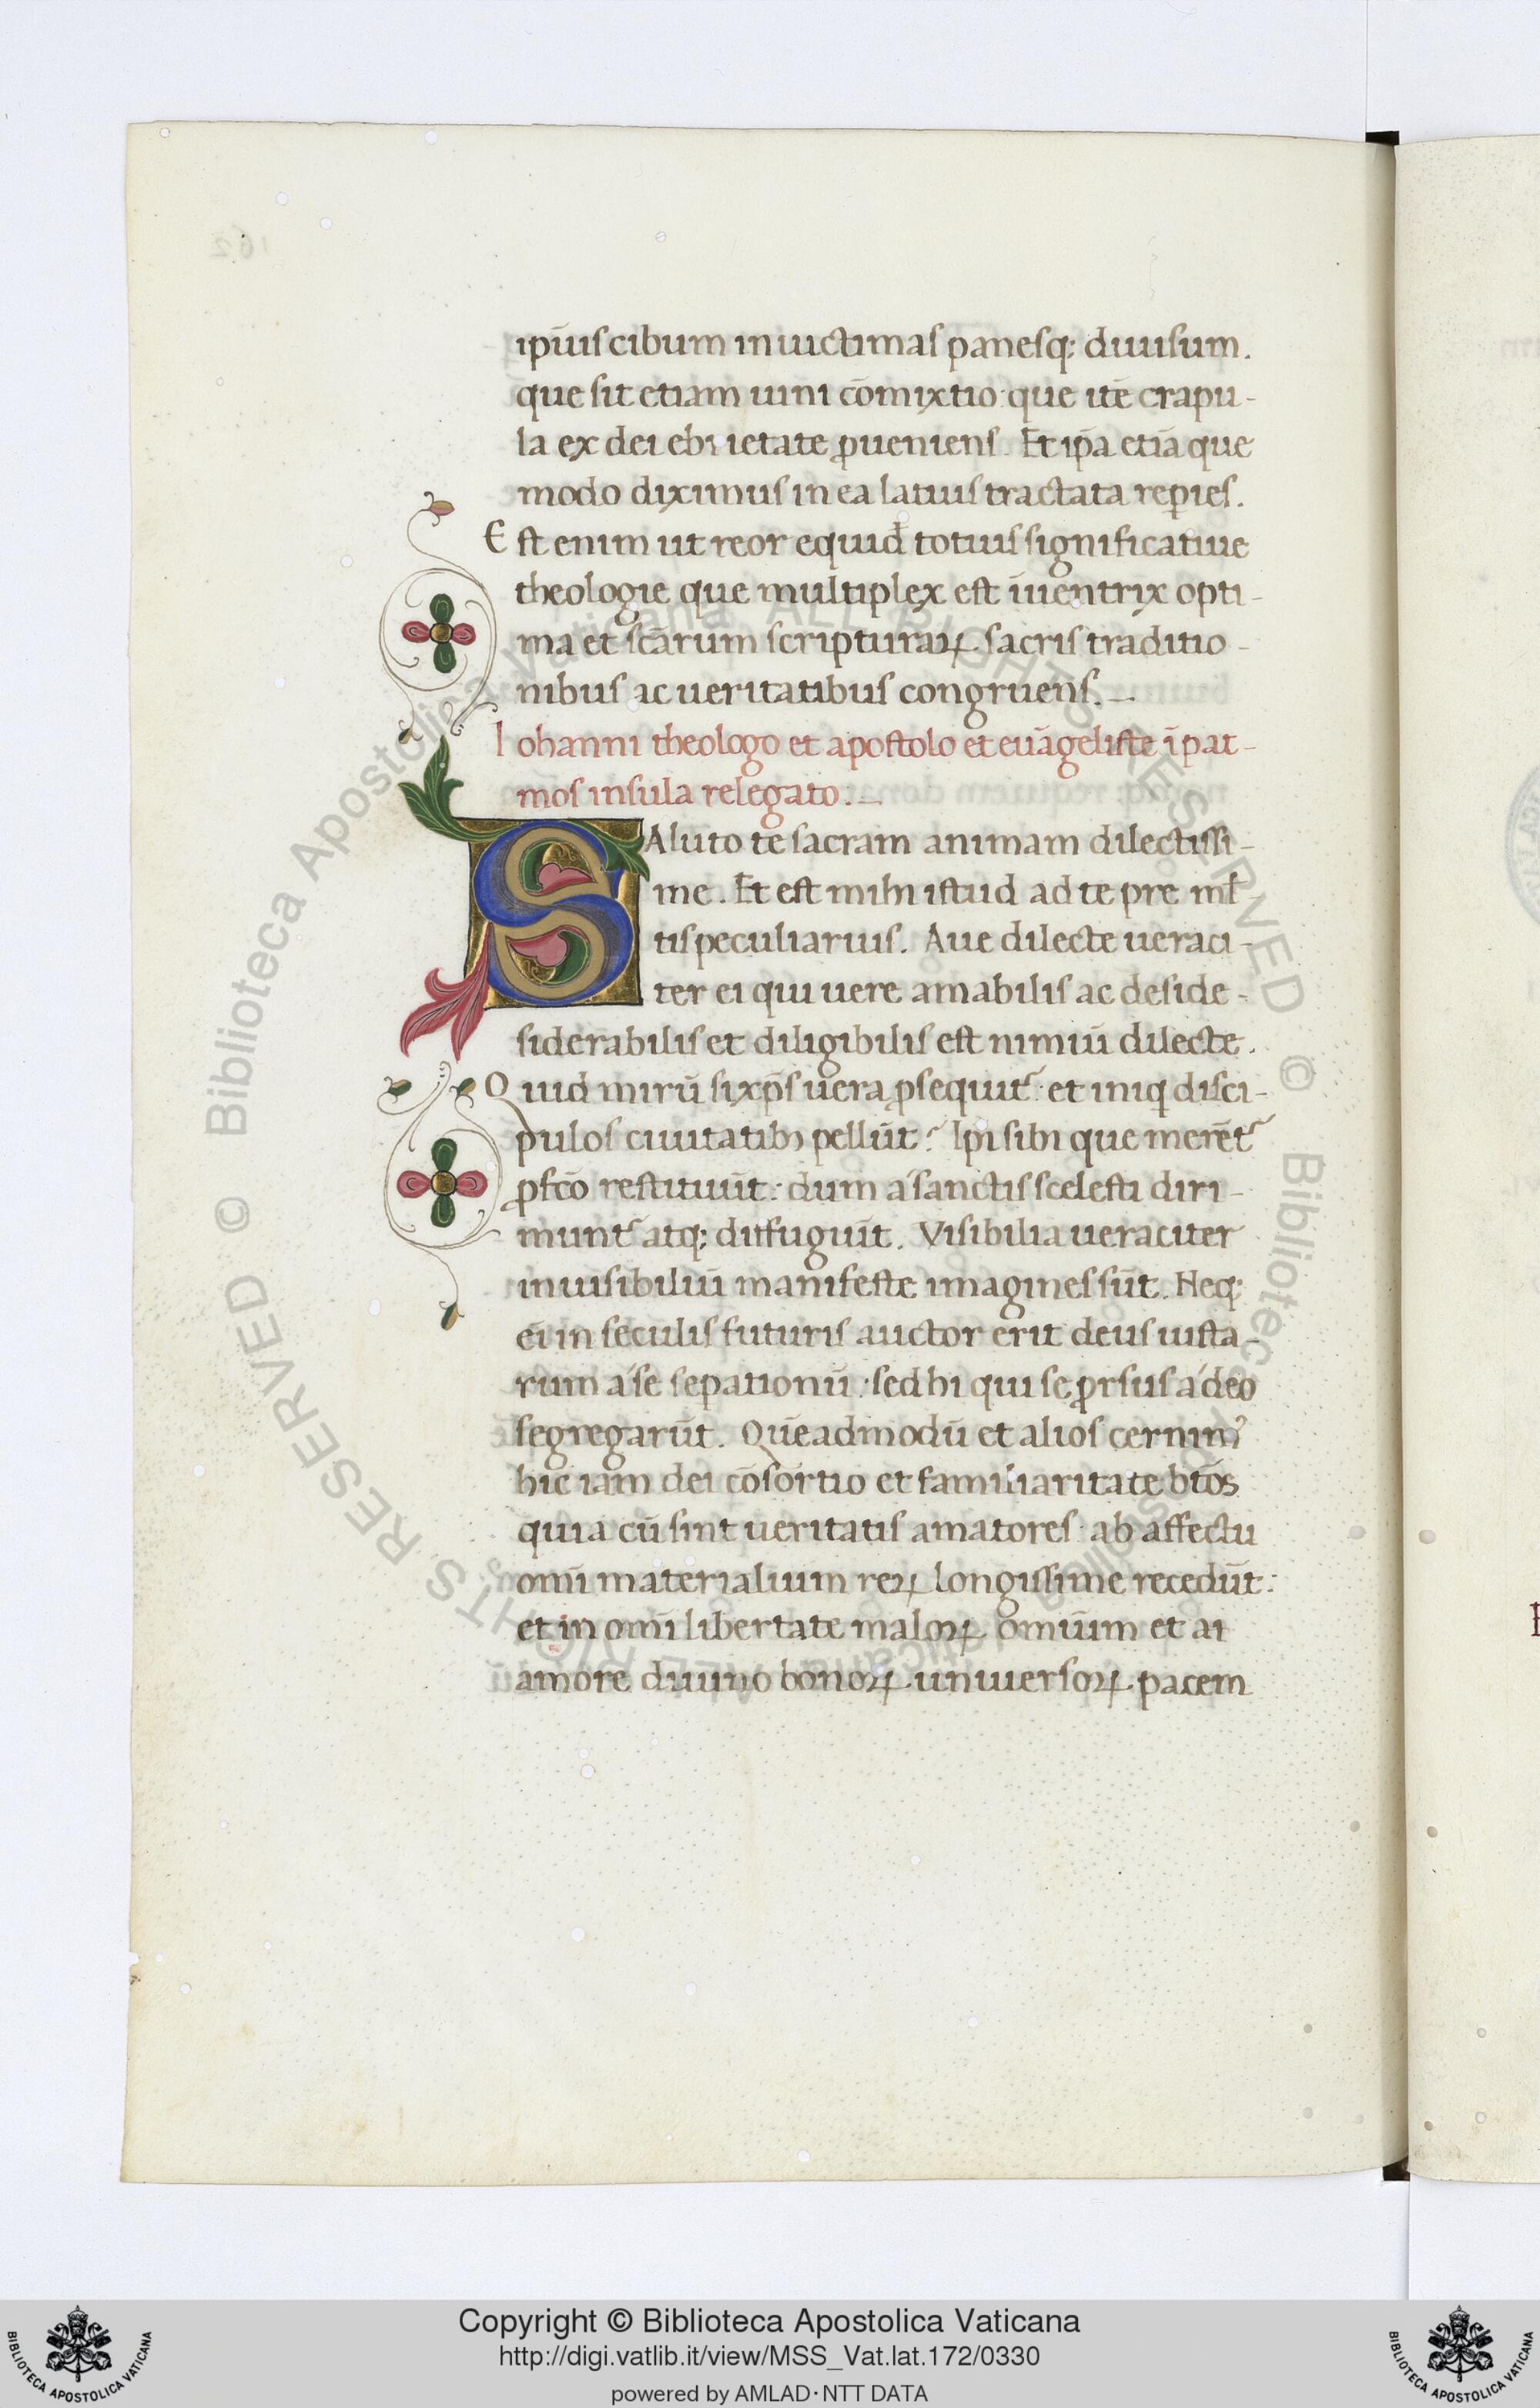 ipīuscibum in uictimas panesq; diuisum.
que sit etiam uini cōmixtio: que itē crapu-
la ex dei ebrietate ꝓueniens. Et ip̄a etiā que
modo diximus in ea latius tractata rep̱ies.
Est enim ut reor equid̄ totius significatiue
theologie que multiplex est īuentrix opti-
ma et sc̄arum scripturaꝝ sacris traditio-
nibus ac ueritatibus congruens.
Iohanni theologo et apostolo et euāgeliste ī pat-
mos insula relegato.
SAluto te sacram animam dilectissi-
me. Et est mihi istud ad te pre ml̄-
tis peculiarius. Aue dilecte ueraci-
ter ei qui uere amabilis ac deside-
siderabilis et diligibilis est nimiū dilecte.
Quid mirū si xp̄s uera ꝓsequit᷑: et iniq discí-
pulos ciuitatibꝫ pellūt? Ip̄i sibi que merēt᷑
ꝓfc̄o restituūt: dum a sanctis scelesti diri-
munt᷑ atq; diffugiūt. Visibilia ueraciter
inuisibiliū manifeste imagines sūt. Neq;
ei in seculis futuris auctor erit deus iusta-
rum a se sepationū: sed hi qui se ꝓrsus a deo
segregarūt. Quēadmodū et alios cernimꝰ
hic iam dei cōsortio et familiaritate btōs
quia cū sint ueritatis amatores ab affectu
omī materialium reꝝ longissime recedūt:
et in omī libertate maloꝝ omīum et ai
amore diuino bonoꝝ uniuersoꝝ pacem
Copyright © Biblioteca Apostolica Vaticana
http://digi.vatlib.it/view/MSS_Vat.lat.172/0330
powered by AMLAD·NTT DATA
BIBLIOTECA APOSTOLICA VATICANA
BIBLIOTECA APOSTOLICA VATICANA